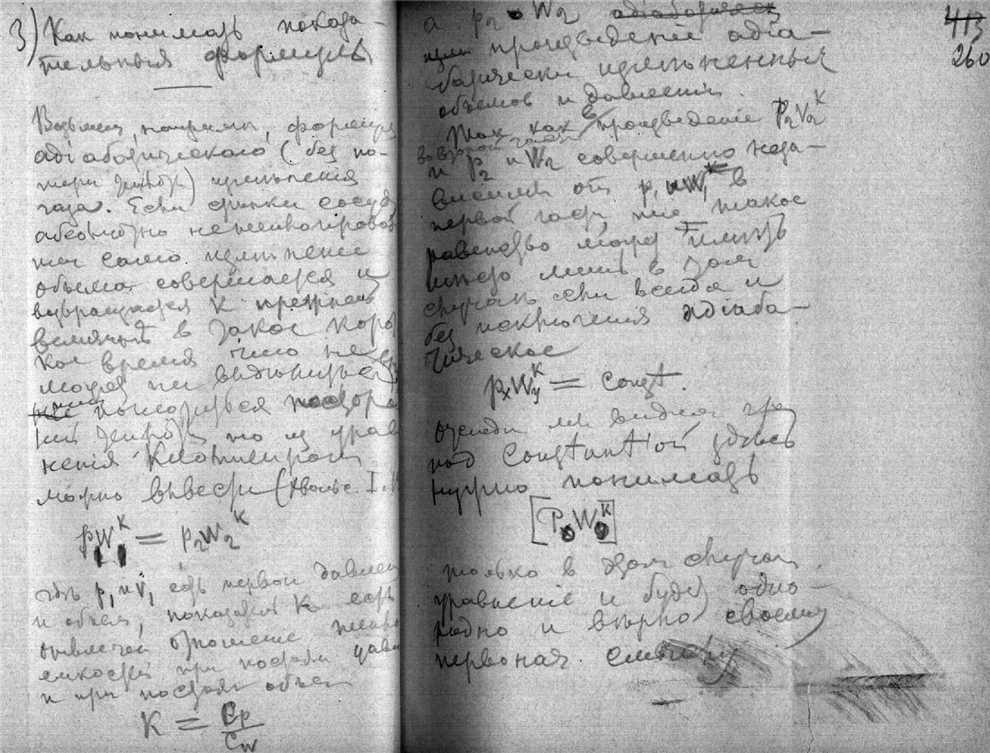 3) Как понимать показа-
тельныя формулы
Возьмем, наприм, формулу
адіабатическаго (без по-
тери) измѣненія
газа. Если стѣнки сосуда
абсолютно
само измѣненіе
объема совершается и
возвращается к прежней
величинѣ в такое корот
кое время что не
может ни выдѣлиться
ни поглотиться
то из урав
ненія Клапейрона
можно вывести (Хвольс. I.
p₁W₁ᴷ = p₂W₂ᴷ
гдѣ p₁ и v₁ есть первой давлен
и объем, показатель К есть
отношение тепло
емкостей при постоян давл
и при постоян объем
K = Cp/Cw
а p₂ W₂
произведеніе адіа-
батически измѣненных
объемов и давленія.
Так как в произведеніе P₂V₂ᴷ
во второй части
и P₂ и W₂ совершенно неза-
висимы от p₁ и W₁ᴷ в
первой части, такое
равенство может имѣть
мѣсто лишь в том
случаѣ если всегда и
без исключения адіаба-
тическое
pₓWᵧᴷ = Const.
очевидно
под Constant ой здѣсь
нужно понимать
[P₀W₀ᴷ]
только в этом случаѣ
уравненіе и будет одно-
родно и вѣрно своему
первонач. смыслу
413
260